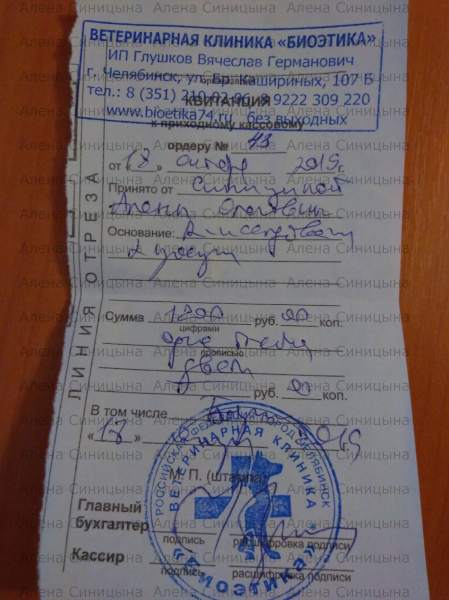 ВЕТЕРИНАРНАЯ КЛИНИКА «БИОЭТИКА»
ИП Глушков Вячеслав Германович
г. Челябинск, ул. Бр. Кашириных, 107 Б
тел.: 8 (351) 210 9222 309 220
www.bioetika74.ru без выходных
КВИТАНЦИЯ
к приходному кассовому
ордеру № 43
от «17» октября 2019г.
Принято от Синицыной
Алены
Основание:
ЛИНИЯ ОТРЕЗА
Сумма 1200 руб. 00 коп.
цифрами
одна тысяча
прописью
двести
руб. 00 коп.
В том числе
2019
М. П. (штампа)
РОССИЙСКАЯ ФЕДЕРАЦИЯ ГОРОД ЧЕЛЯБИНСК
ВЕТЕРИНАРНАЯ КЛИНИКА
«БИОЭТИКА»
Главный
бухгалтер
подпись расшифровка подписи
Кассир
подпись расшифровка подписи
Алена Синицына